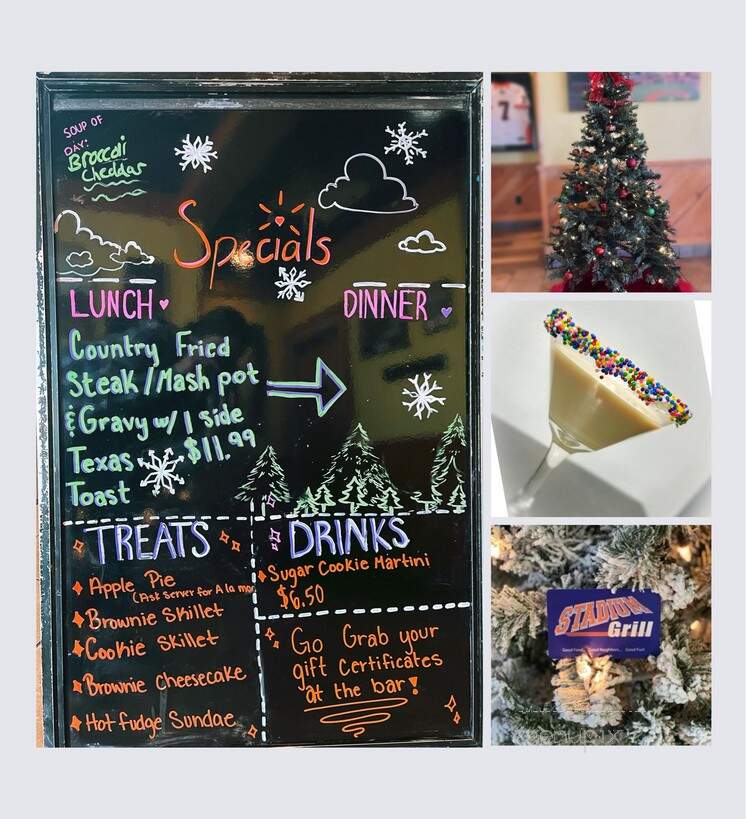 SOUP OF
DAY:
Broccoli
Cheddar
Specials
LUNCH
DINNER
Country Fried
Steak / Mash pot
& Gravy w/ 1 side
$11.99
Texas
Toast
TREATS
Apple Pie
Brownie Skillet
Cookie Skillet
Brownie Cheesecake
Hot fudge Sundae
DRINKS
Sugar Cookie Martini
$6.50
Go Grab your
gift certificates
at the bar!
7
STADIUM
Grill
Good Food... Good Neighbors... Good Fun!